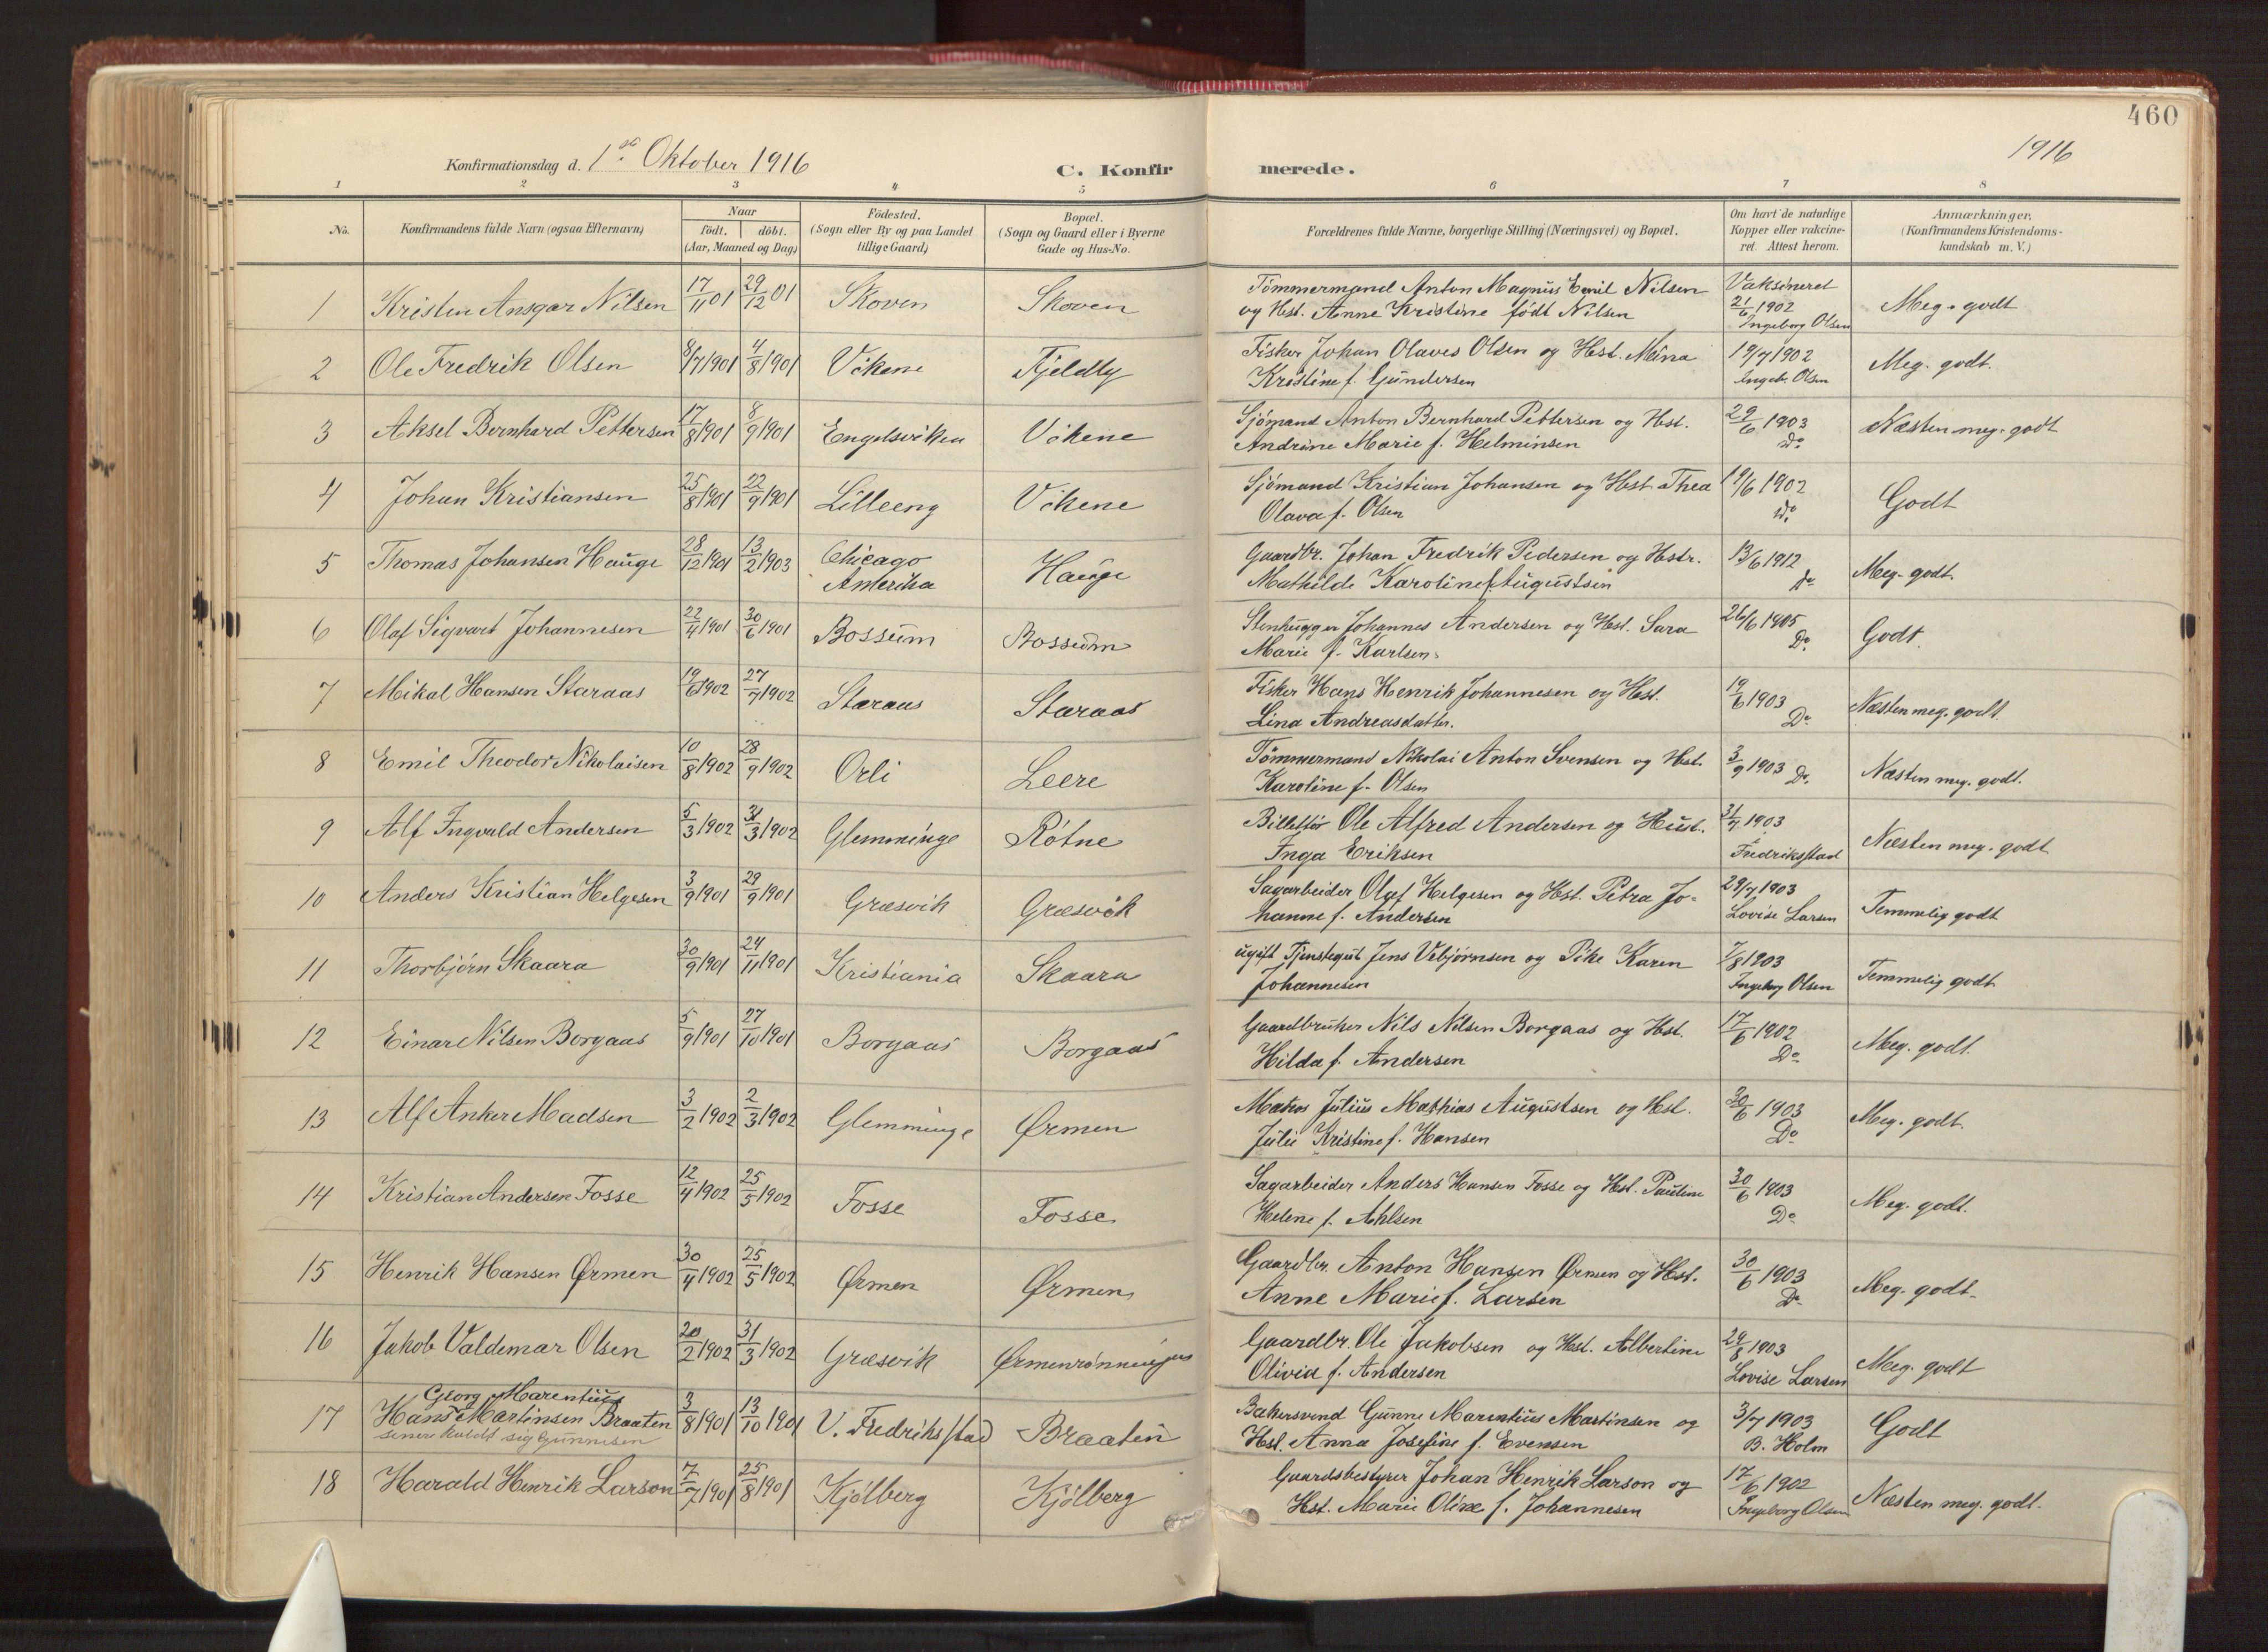 460
Konfirmationsdag d. 1ste Oktober 1916 C. Konfirmerede. 1916
1 2 3 4 5 6 7 8
No. Konfirmandens fulde Navn (ogsaa Efternavn) Naar födt. döbt. (Aar, Maaned og Dag) Födested. (Sogn eller By og paa Landet tillige Gaard) Bopæl. (Sogn og Gaard eller i Byerne Gade og Hus-No. Forældrenes fulde Navne, borgerlige Stilling (Næringsvei) og Bopæl. Om havt de naturlige Kopper eller vakcineret. Attest herom. Anmærkninger. (Konfirmandens Kristendomskundskab m. V.)
1 Kristen Ansgar Nilsen 17/11 01 29/12 01 Skoven Skoven Tömmermand Anton Magnus Emil Nilsen Vaksineret
og Hst. Anne Kristine födt Nilsen 21/6 1902 Ingeborg Olsen Meg. godt
2 Ole Fredrik Olsen 8/7 1901 4/8 1901 Vikene Fjeldly Fisker Johan Olaves Olsen og Hst. Mina
Kristine f. Gundersen 19/7 1902 Ingebr. Olsen Meg. godt.
3 Aksel Bernhard Pettersen 17/8 1901 8/9 1901 Engelsviken Vikene Sjömand Anton Bernhard Pettersen og Hst.
Andrine Marie f. Helminsen 29/6 1903 Do Næsten meg. godt
4 Johan Kristiansen 25/8 1901 22/9 1901 Lilleeng Vikene Sjömand Kristian Johansen og Hst. Thea
Olava f. Olsen 19/6 1902 Do Godt
5 Thomas Johansen Hauge 28/12 1901 13/2 1903 Chicago Amerika Hauge Gaardbr. Johan Fredrik Pedersen og Hstr.
Mathilde Karoline f. Augustsen 13/6 1912 Do Meg. godt.
6 Olaf Sigvart Johannesen 22/4 1901 30/6 1901 Bossum Bossum Stenhugger Johannes Andersen og Hst. Sara
Marie f. Karlsen. 26/6 1905 Do. Godt.
7 Mikal Hansen Staraas 19/6 1902 27/7 1902 Staraas Staraas Fisker Hans Henrik Johannesen og Hst.
Lina Andreasdatter. 19/6 1903 Do Næsten meg. godt.
8 Emil Theodor Nikolaisen 10/8 1902 28/9 1902 Orli Leere Tömmermand Nikolai Anton Svensen og Hst.
Karoline f. Olsen 3/9 1903 Do. Næsten meg. godt.
9 Alf Ingvald Andersen 5/3 1902 31/3 1902 Glemminge Rötne Billettör Ole Alfred Andersen og Hust.
Inga Eriksen 1903 Fredriksstad Næsten meg. godt
10 Anders Kristian Helgesen 3/9 1901 29/9 1901 Græsvik Græsvik Sagarbeider Olaf Helgesen og Hst. Petra Jo-
hanne f. Andersen 29/7 1903 Lovise Larsen Temmelig godt
11 Thorbjörn Skaara 30/9 1901 24/11 1901 Kristiania Skaara ugift Tjenstegut Jens Vebjørnsen og Pike Karen
Johannesen 7/8 1903 Ingeborg Olsen Temmelig godt
12 Einar Nilsen Borgaas 5/9 1901 27/10 1901 Borgaas Borgaas Gaardbruker Nils Nilsen Borgaas og Hst.
Hilda f. Andersen 17/6 1902 Do Meg. godt.
13 Alf Anker Madsen 3/2 1902 2/3 1902 Glemminge Ørmen Matros Julius Mathias Augustsen og Hst.
Julie Kristine f. Hansen 30/6 1903 Do Meg. godt.
14 Kristian Andersen Fosse 12/4 1902 25/5 1902 Fosse Fosse Sagarbeider Anders Hansen Fosse og Hst. Pauline
Helene f. Ahlsen 30/6 1903 Do Meg. godt.
15 Henrik Hansen Ørmen 30/4 1902 25/5 1902 Ørmen Ørmen Gaardbr. Anton Hansen Ørmen og Hst.
Anne Marie f. Larsen 30/6 1903 Do Meg. godt.
16 Jakob Valdemar Olsen 20/2 1902 31/3 1902 Græsvik Ørmenrønningen Gaardbr. Ole Jakobsen og Hst. Albertine
Olivia f. Andersen 29/8 1903 Lovise Larsen Meg. godt
Georg Marentius
17 Hans Martinsen Braaten 3/8 1901 13/10 1901 V. Fredriksstad Braaten Bakersvend Gunne Marentius Martinsen og
senere kaldt sig Gunnesen Hst. Anna Josefine f. Evensen 3/7 1903 B. Holm Godt
18 Harald Henrik Larson 7/7 1901 25/8 1901 Kjölberg Kjölberg Gaardsbestyrer Johan Henrik Larson og
Hst. Marie Oline f. Johannesen 17/6 1902 Ingeborg Olsen Næsten meg. godt.